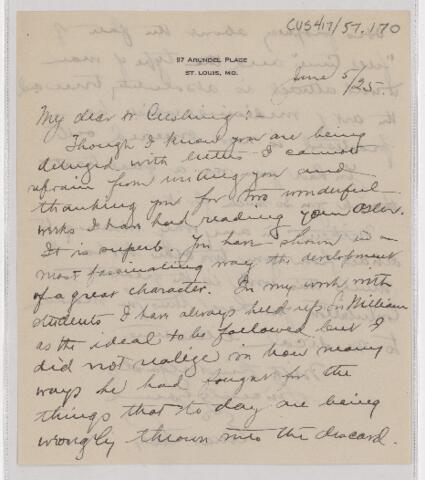 CUS417/57.170
97 ARUNDEL PLACE
ST. LOUIS, MO.
June 5/25
My dear Dr Cushing:-
Though I know you are being
deluged with letters I cannot
refrain from writing you and
thanking you for two wonderful
weeks I have had reading your Osler.
It is superb. You have shown in a
most fascinating way the development
of a great character. In my work with
students I have always held up Sir William
as the ideal to be followed but I
did not realize in how many
ways he had fought for the
things that to day are being
wrongly thrown into the discard.